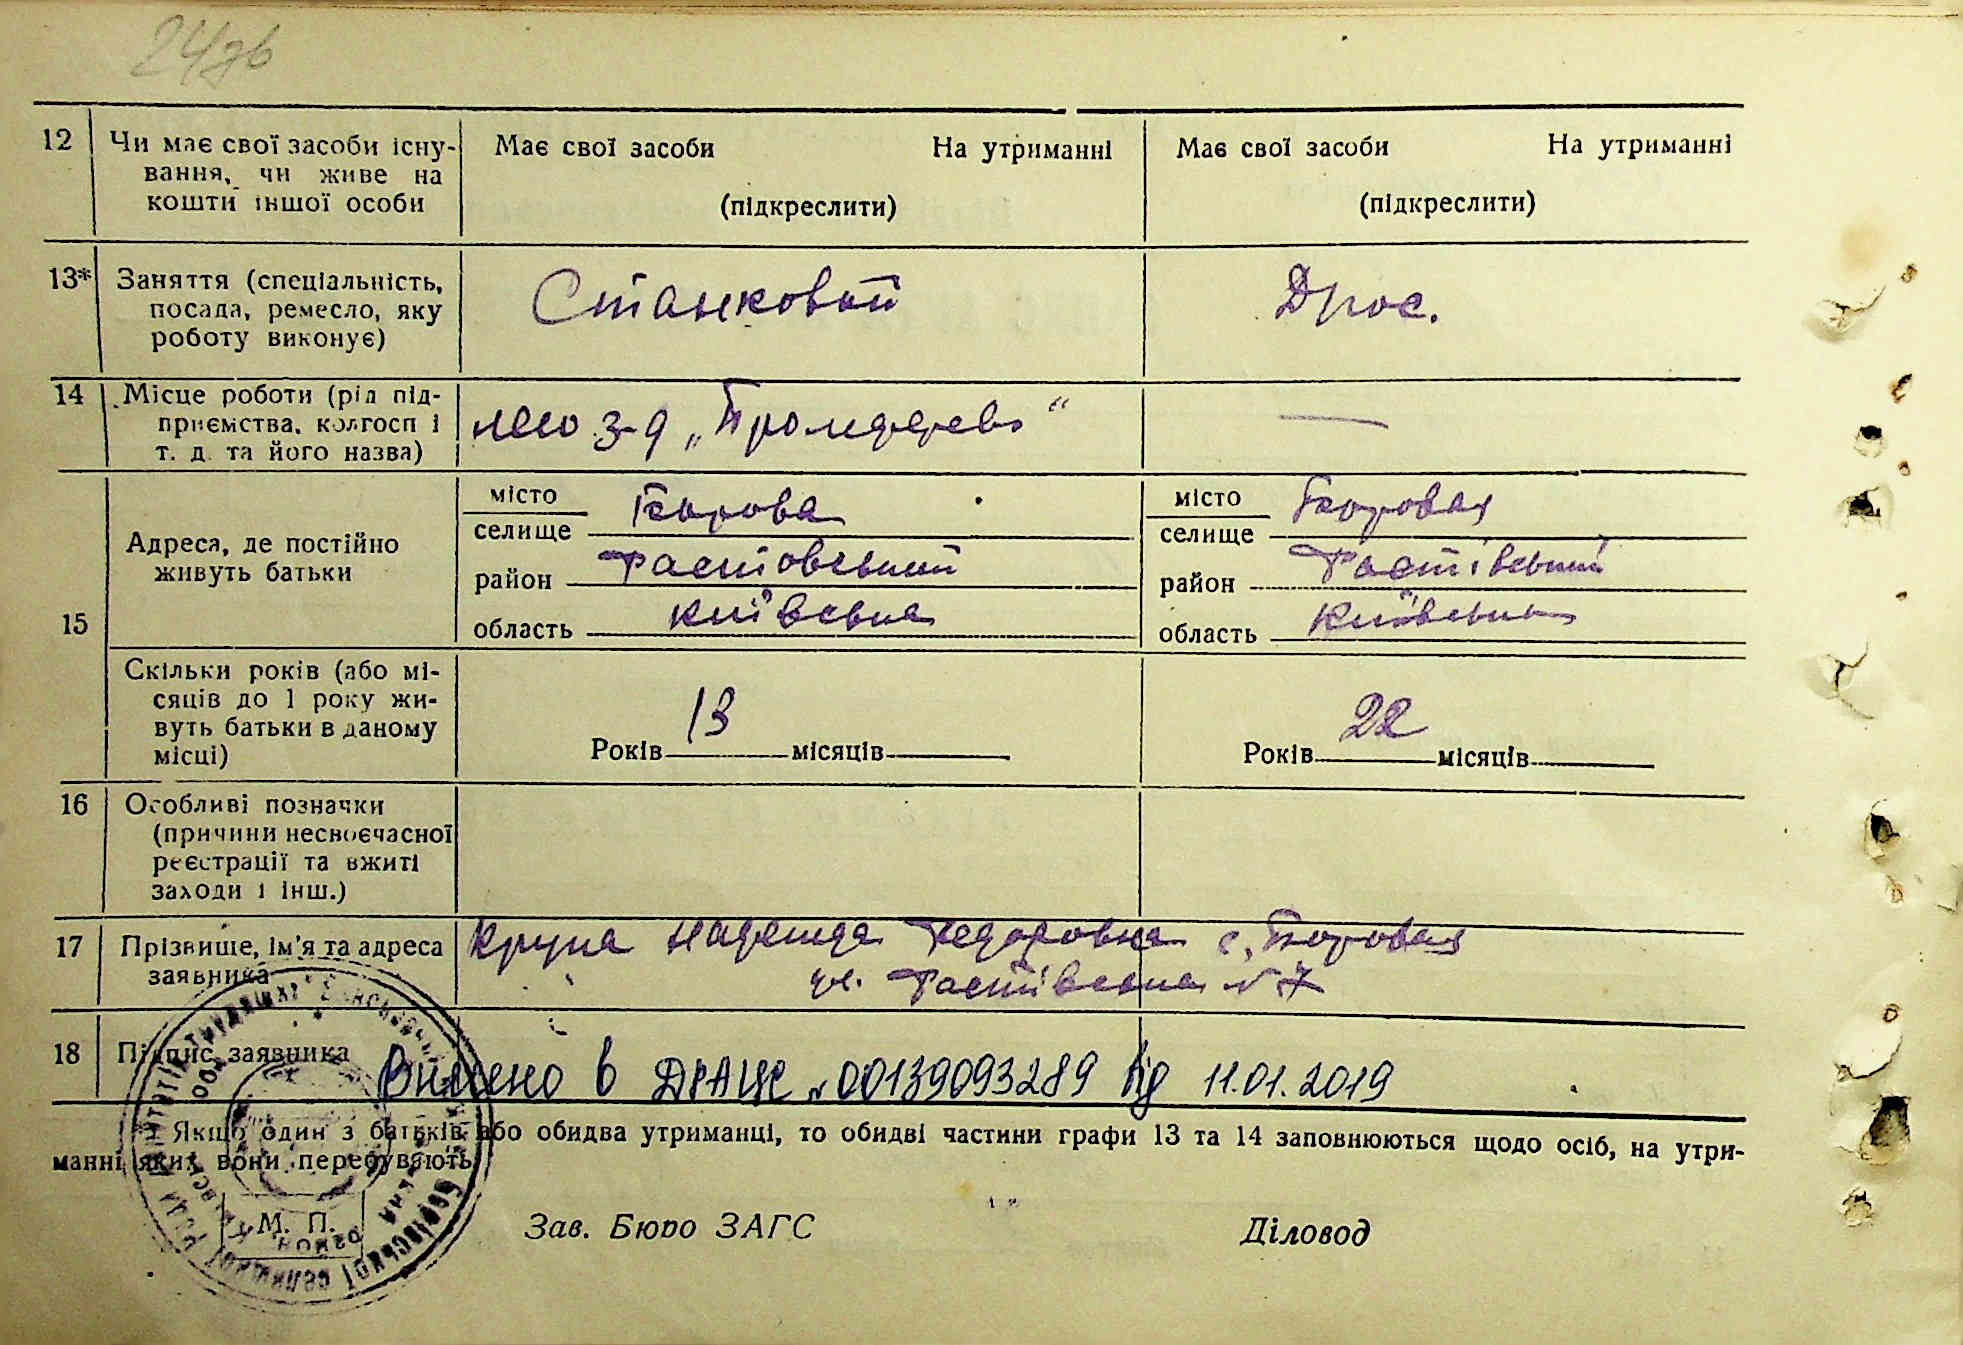 24зв
12 Чи має свої засоби існу- Має свої засоби На утриманні Має свої засоби На утриманні
вання, чи живе на
кошти іншої особи (підкреслити) (підкреслити)
13* Заняття (спеціальність, Становий Дрос.
посада, ремесло, яку
роботу виконує)
14 Місце роботи (рід під- лесо з-д „Промдерево"
приємства, колгосп і —
т. д. та його назва)
15 Адреса, де постійно живуть батьки
місто Борова місто Боровая
селище селище
район Фастовський район Фастівський
область Київська область Київська
Скільки років (або мі-
сяців до 1 року жи-
вуть батьки в даному
місці) Років 13 місяців Років 22 місяців
16 Особливі позначки
(причини несвоєчасної
реєстрації та вжиті
заходи і інш.)
17 Прізвище, ім'я та адреса Крупа Надежда Федоровна с. Боровая
заявника ул. Фастівська № 7
18 Підпис заявника
Внесено в ДРАЦС № 00139093289 від 11.01.2019
Якщо один з батьків або обидва утриманці, то обидві частини графи 13 та 14 заповнюються щодо осіб, на утри-
манні яких вони перебувають
М. П. Зав. Бюро ЗАГС Діловод